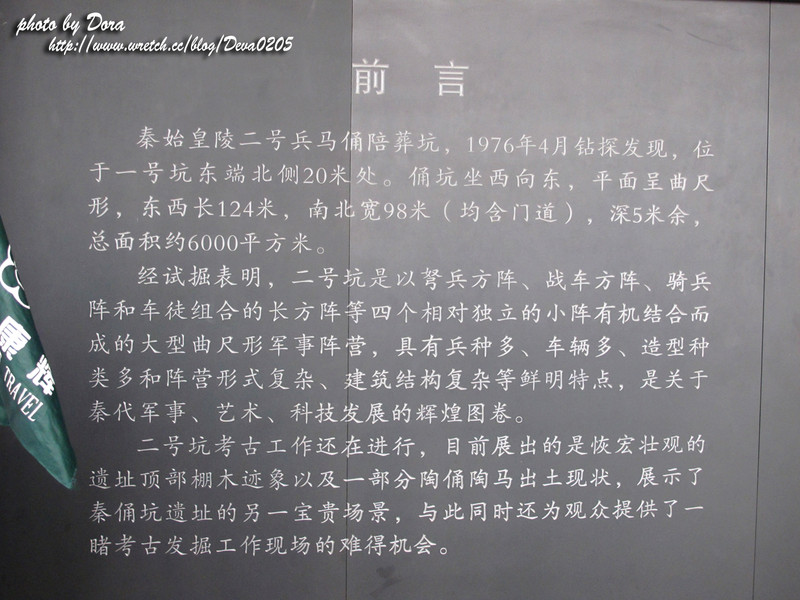 photo by Dora
http://www.wretch.cc/blog/Deva0205
前 言
秦始皇陵二号兵马俑陪葬坑，1976年4月钻探发现，位
于一号坑东端北侧20米处。俑坑坐西向东，平面呈曲尺
形，东西长124米，南北宽98米（均含门道），深5米余，
总面积约6000平方米。
经试掘表明，二号坑是以弩兵方阵、战车方阵、骑兵
阵和车徒组合的长方阵等四个相对独立的小阵有机结合而
成的大型曲尺形军事阵营，具有兵种多、车辆多、造型种
类多和阵营形式复杂、建筑结构复杂等鲜明特点，是关于
秦代军事、艺术、科技发展的辉煌图卷。
二号坑考古工作还在进行，目前展出的是恢宏壮观的
遗址顶部棚木迹象以及一部分陶俑陶马出土现状，展示了
秦俑坑遗址的另一宝贵场景，与此同时还为观众提供了一
睹考古发掘工作现场的难得机会。
康辉
TRAVEL